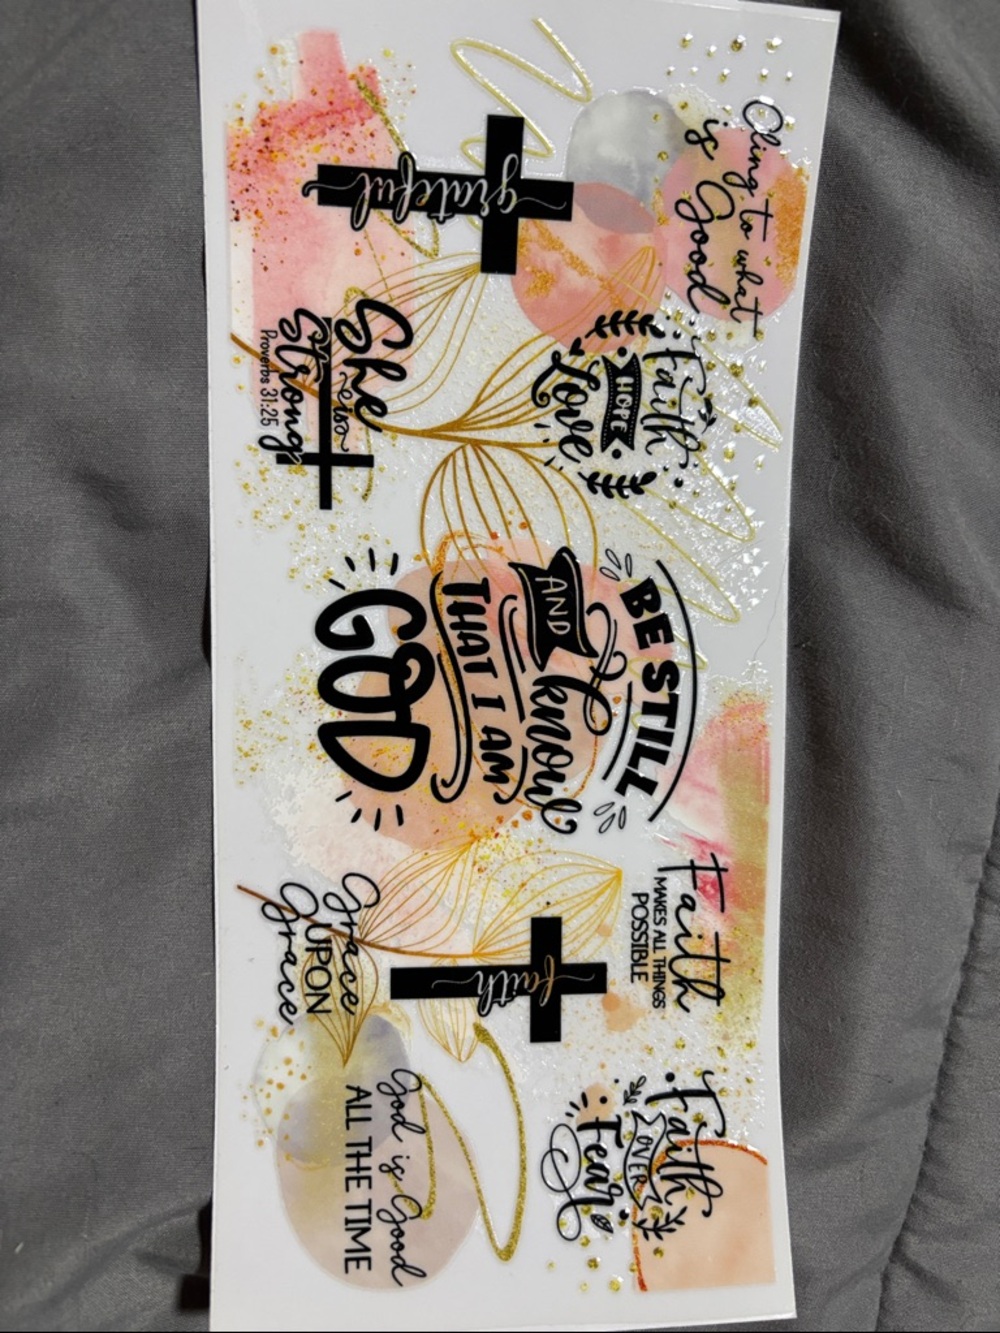 Cling to what
is Good
grateful
Faith
HOPE
Love
She
is
Strong
Proverbs 31:25
BE STILL
AND
know
THAT I AM
GOD
Faith
MAKES ALL THINGS
POSSIBLE
faith
Grace
UPON
Grace
Faith
OVER
Fear
God is Good
ALL THE TIME